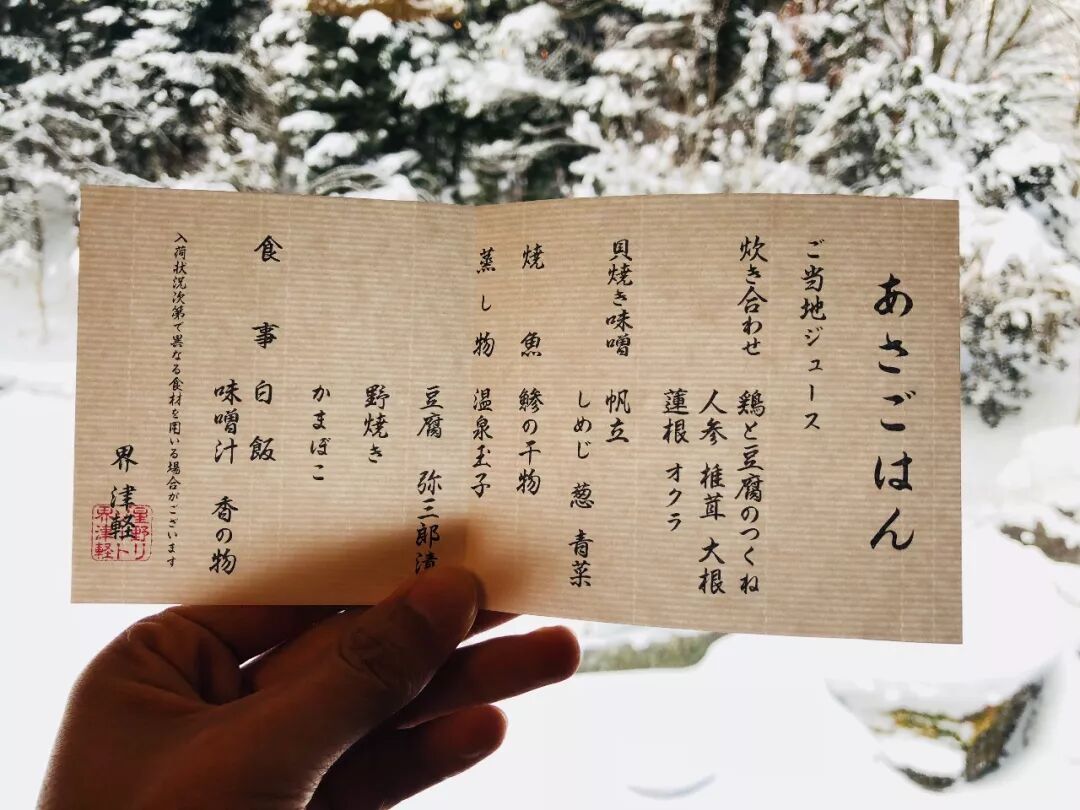 あさごはん
ご当地ジュース
炊き合わせ 鶏と豆腐のつくね
人参 椎茸 大根
蓮根 オクラ
貝焼き味噌 帆立
しめじ 葱 青菜
焼魚 鯵の干物
蒸し物 温泉玉子
豆腐 弥三郎漬
野焼き
かまぼこ
食事 白飯
味噌汁 香の物
入荷状況次第で異なる食材を用いる場合がございます
界 津軽
星野リ
ト
界津軽